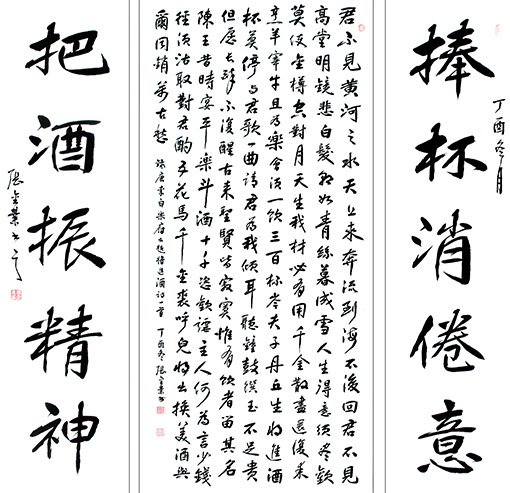 捧杯消倦意
丁酉冬月
君不見黄河之水天上来奔流到海不復回君不見
高堂明鏡悲白髮朝如青絲暮成雪人生得意須尽歡
莫使金樽空對月天生我材必有用千金散盡還復来
烹羊宰牛且為樂會須一飲三百杯岑夫子丹丘生将進酒
杯莫停与君歌一曲請君為我傾耳聽鐘鼓饌玉不足貴
但愿長醉不復醒古来聖賢皆寂寞惟有飲者留其名
陳王昔時宴平樂斗酒十千恣歡謔主人何為言少錢
徑須沽取對君酌五花馬千金裘呼兒将出換美酒與
爾同銷萬古愁 錄唐李白樂府古題将進酒詩一首 丁酉冬張金業书
把酒振精神
張金業书